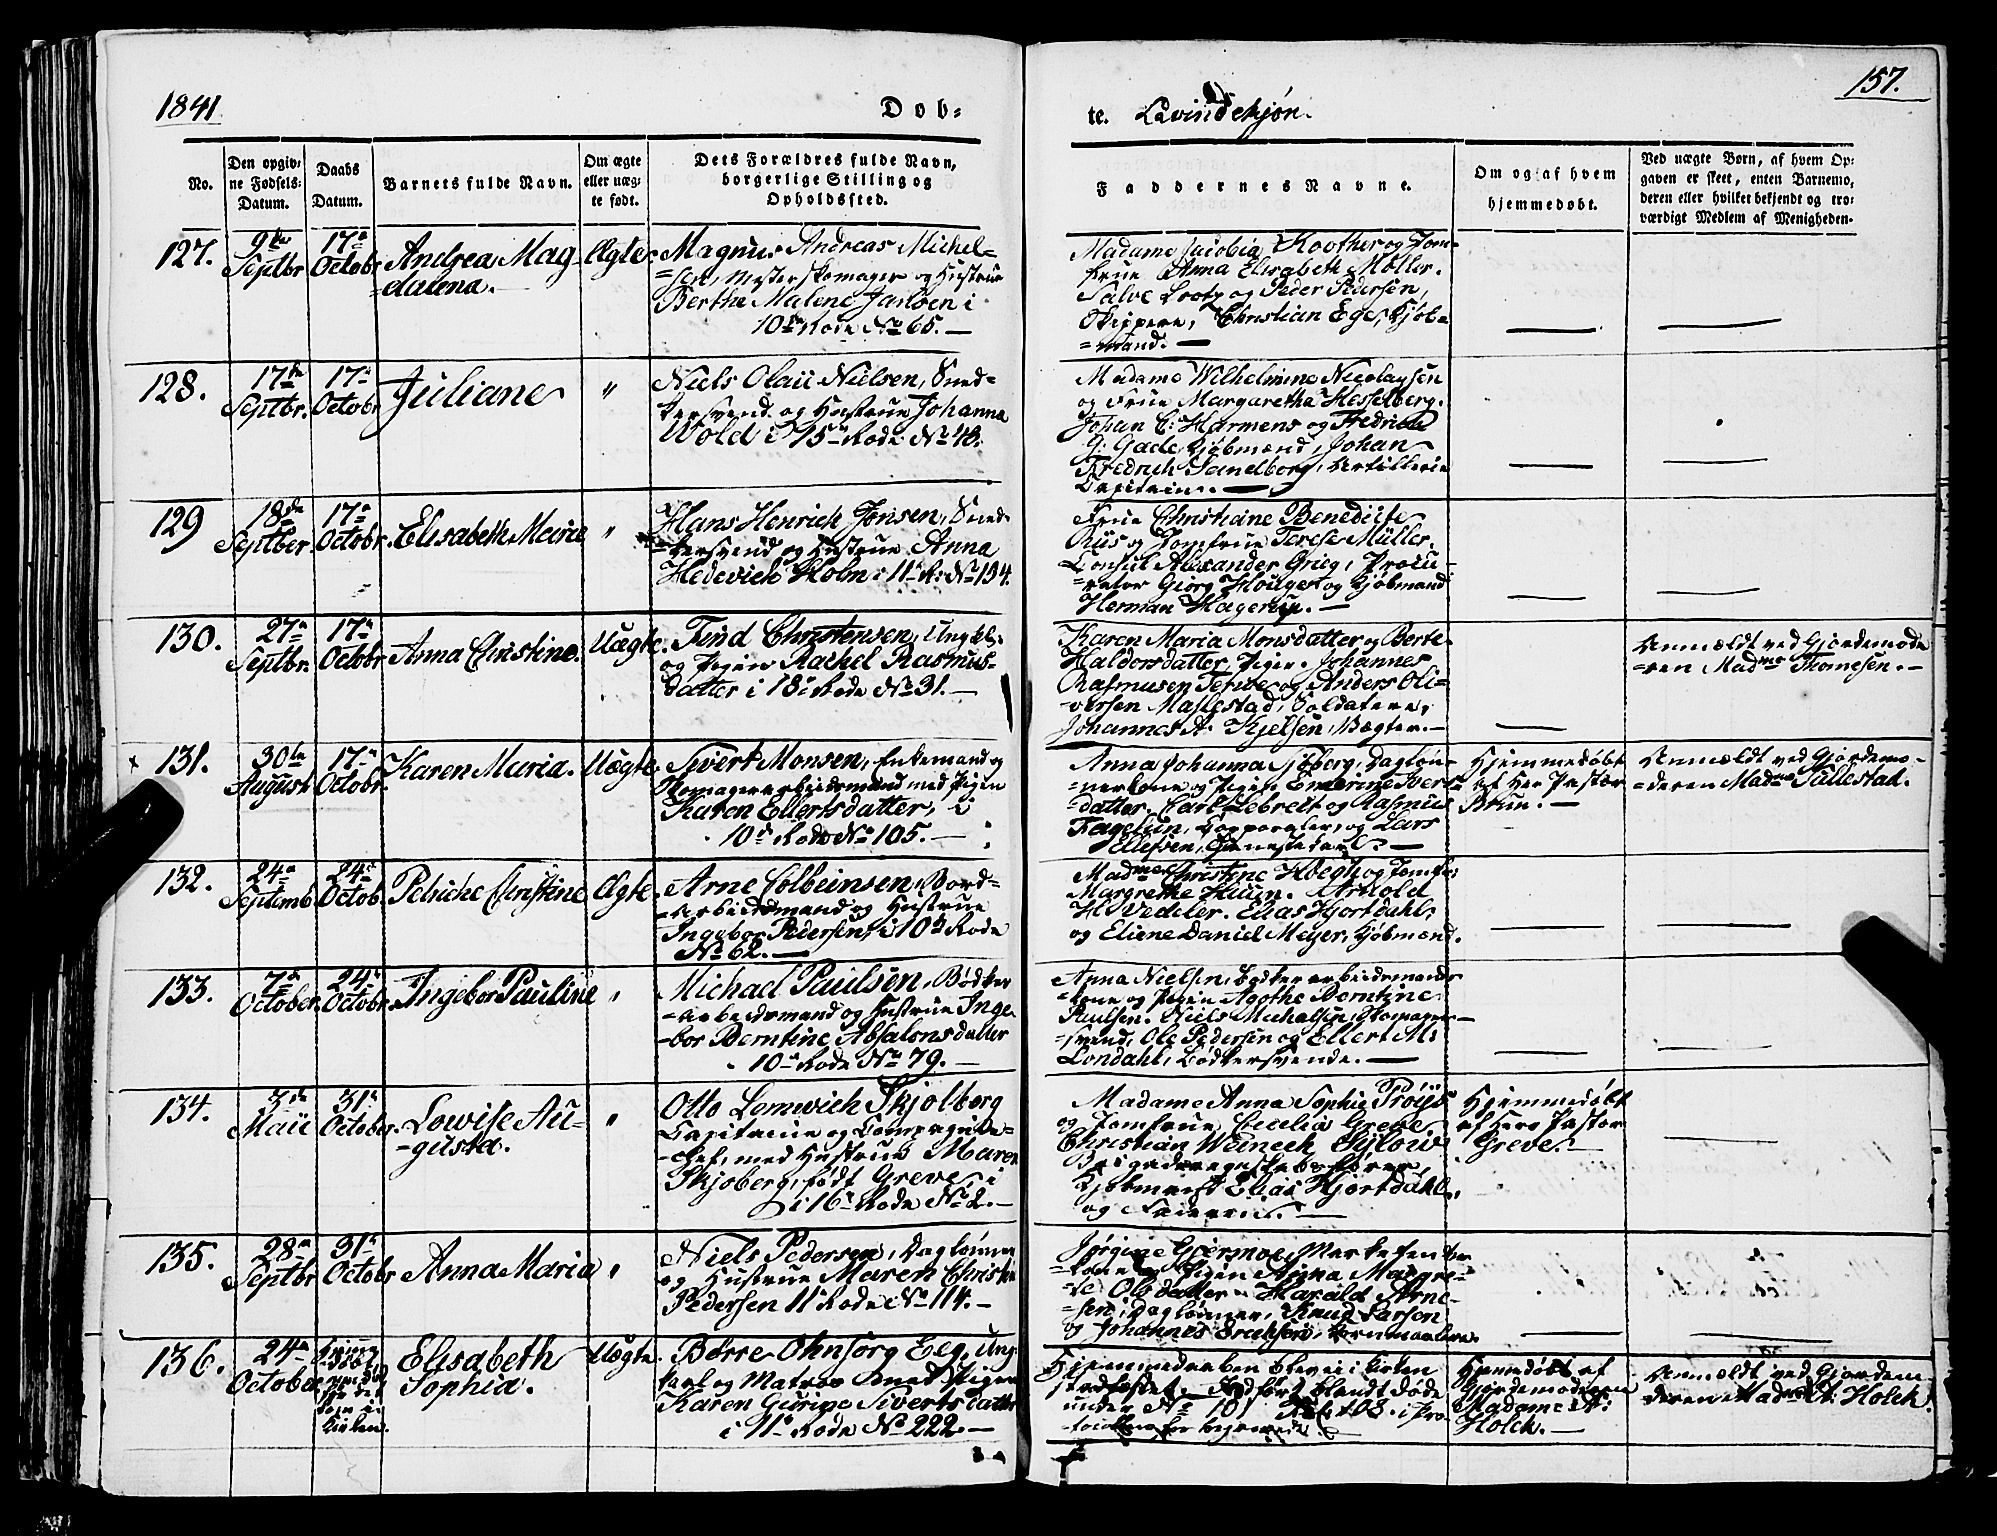 1841
Dob-
te. Qvindekjøn.
157.
No.
Den opgiv-
ne Fødsels-
Datum.
Daabs
Datum.
Barnets fulde Navn.
Om ægte
eller uæg-
te født.
Dets Forældres fulde Navn,
borgerlige Stilling og
Opholdssted.
Faddernes Navne.
Om og af hvem
hjemmedøbt.
Ved uægte Børn, af hvem Op-
gaven er skeet, enten Barnemo-
deren eller hvilket bekjendt og tro-
værdigt Medlem af Menigheden.
127.
9de
Septbr
17de
Octobr
Andrea Mag-
=dalena.
Ægte
Magnus Andreas Michel-
=sen, Mesterskomager og Hustrue
Berthe Malene Jansen i
10de Rode No 65.
Madame Jacobia Koother og Jom-
frue Anna Elisabeth Möller.
Salve og Peder Pedersen,
Skippere, Christian Ege, Kjøb-
=mand.
128.
17de
Septbr.
17de
Octobr
Juliane
"
Niels Olaii Nielsen, Sned-
kersvend og Hustrue Johanna
Wold i 15de Rode No 48.
Madame Wilhelmine Nicolaysen
og Frue Margaretha Hesselberg.
Johan C: Harmens og Fredrich
G: Gade Kjøbmænd, Johan
Fredrich Sandborg, Artillerie
Capitain.
129
18de
Septber.
17de
Octobr.
Elisabeth Marie
"
Hans Henrich Jonsen, Sned-
kersvend og Hustrue Anna
Hedevich Holm i 11te R. No 134.
Frue Christiane Benedicte
Riis og Jomfrue Terese Müller.
Consul Alexander Grieg, Procu-
=rator Giørg og Kjøbmand
Herman Hagerup.
130.
27de
Septbr.
17de
Octobr
Anna Christine.
Uægte.
Find Christensen, Ungkl.
og Pigen Rachel Rasmus-
datter i 18de Rode No 31.
Karen Maria Monsdatter og Berte
Haldorsdatter, Piger. Johannes
Rasmusen og Anders Oli-
=versen Maslestad, Soldatere,
Johannes A. Kjelsen, Vægter.
Anmældt ved Gjordemode
=ren Madme Thomesen.
131.
30te
August
17de
Octobr.
Karen Maria.
Uægte.
Sivert Monsen, Enkemand og
Skomagerarbeidsmand med Pigen
Karen Ellertsdatter, i
10de Rode No 105.
Anna Johanna Sjöberg, Dagløn-
=nerkone og Pigen Emerine Iverts-
datter. Carl Lebreit og Rasmus
Fagelun, Corporaler, og Lars
Ellefsen, Tjenestekarl.
Hjemmedøbt
af Her Pastor
Brun.
Anmældt ved Gjordemo-
=deren Madme Tillestad.
132.
24de
Septemb.
24de
Octob.
Petriche Christine
Ægte.
Arne Colbeinsen, Bord-
=arbeidsmand og Hustrue
Ingebor Pedersen, i 10de Rode
No 62.
Madme Christine Höegh og Jomfr:
Margrethe Huun. Arnold
H. Vedeler. Elias Hjortdahl,
og Eliene Daniel Meyer, Kjøbmænd.
133.
7de
October.
24de
Octobr.
Ingebor Pauline
"
Michael Paulsen, Bødker
=arbeidsmand og Hustrue Inge-
bor Berntine Absalonsdatter
10de Rode No 79.
Anna Nielsen, Bødkerarbeidsmands
=kone og Pigen Agothe Berntine
Paulsen. Niels Michalsen, Skomager-
=svend, Ole Pedersen og Ellert M:
Londahl, Bødkersvende.
134.
3de
Maii
31te
October.
Lowise Au-
=gusta.
"
Otto Lemwich Skjolberg
Capitaine og Compagnie-
=chef, med Hustrue Maren
Skjoberg, født Greve, i
i 16de Rode No 2.
Madame Anna Sophie Pröÿs
og Jomfrue Cecilia Greve
Christian Weineck Sylow
Brigaderegnskabsfører,
Kjøbmand Elias Hjortdahl,
og Faderen.
Hjemmedøbt
af Herr Pastor
Greve.
135.
28de
Septbr
31te
Octobr
Anna Maria
"
Niels Pedersen, Daglønner
og Hustrue Maren Christine
Pedersen 11te Rode No 114.
Jørgine Gjermoe, Marketenter
=kone og Pigen Anna Margre-
=te Olsdatter. Harald Arne-
=sen, Daglønner, Knud Larsen
og Johannes Erichsen, Kornmaalere.
136.
24de
October.
Kirken.
Elisabeth
Sophia.
Uægte.
Börre Ohnsorg Eeg, Ung-
karl og Matros med Pigen
Karen Gurine Sivertsdatter
i 11te Rode No 222.
Hjemmedaaben blev ei i Kirken
stadfæstet. Indført blandt døde
under No 101 Pag. 108 i Pro-
tocollen for begravede.
Hjemdøbt af
Gjordemoderen
Madame A:
Holck.
Anmældt ved Gjordem
deren Madme A: Holck.